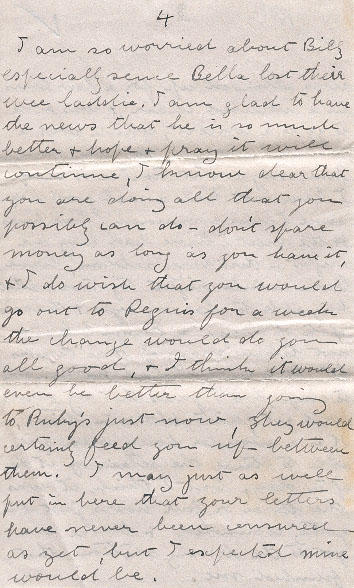 4
I am so worried about Billy
especially sence Bella lost their
wee laddie. I am glad to have
the news that he is so much
better & hope & pray it will
continue, I know dear that
you are doing all that you
possibly can do - don't spare
money as long as you have it,
& I do wish that you would
go out to Reginis for a week
the change would do you
all good, & I think it would
even be better than going
to Ruby's just now, they would
certainly feed you up between
them. I may just as well
put in here that your letters
have never been censured
as yet, but I expected mine
would be.